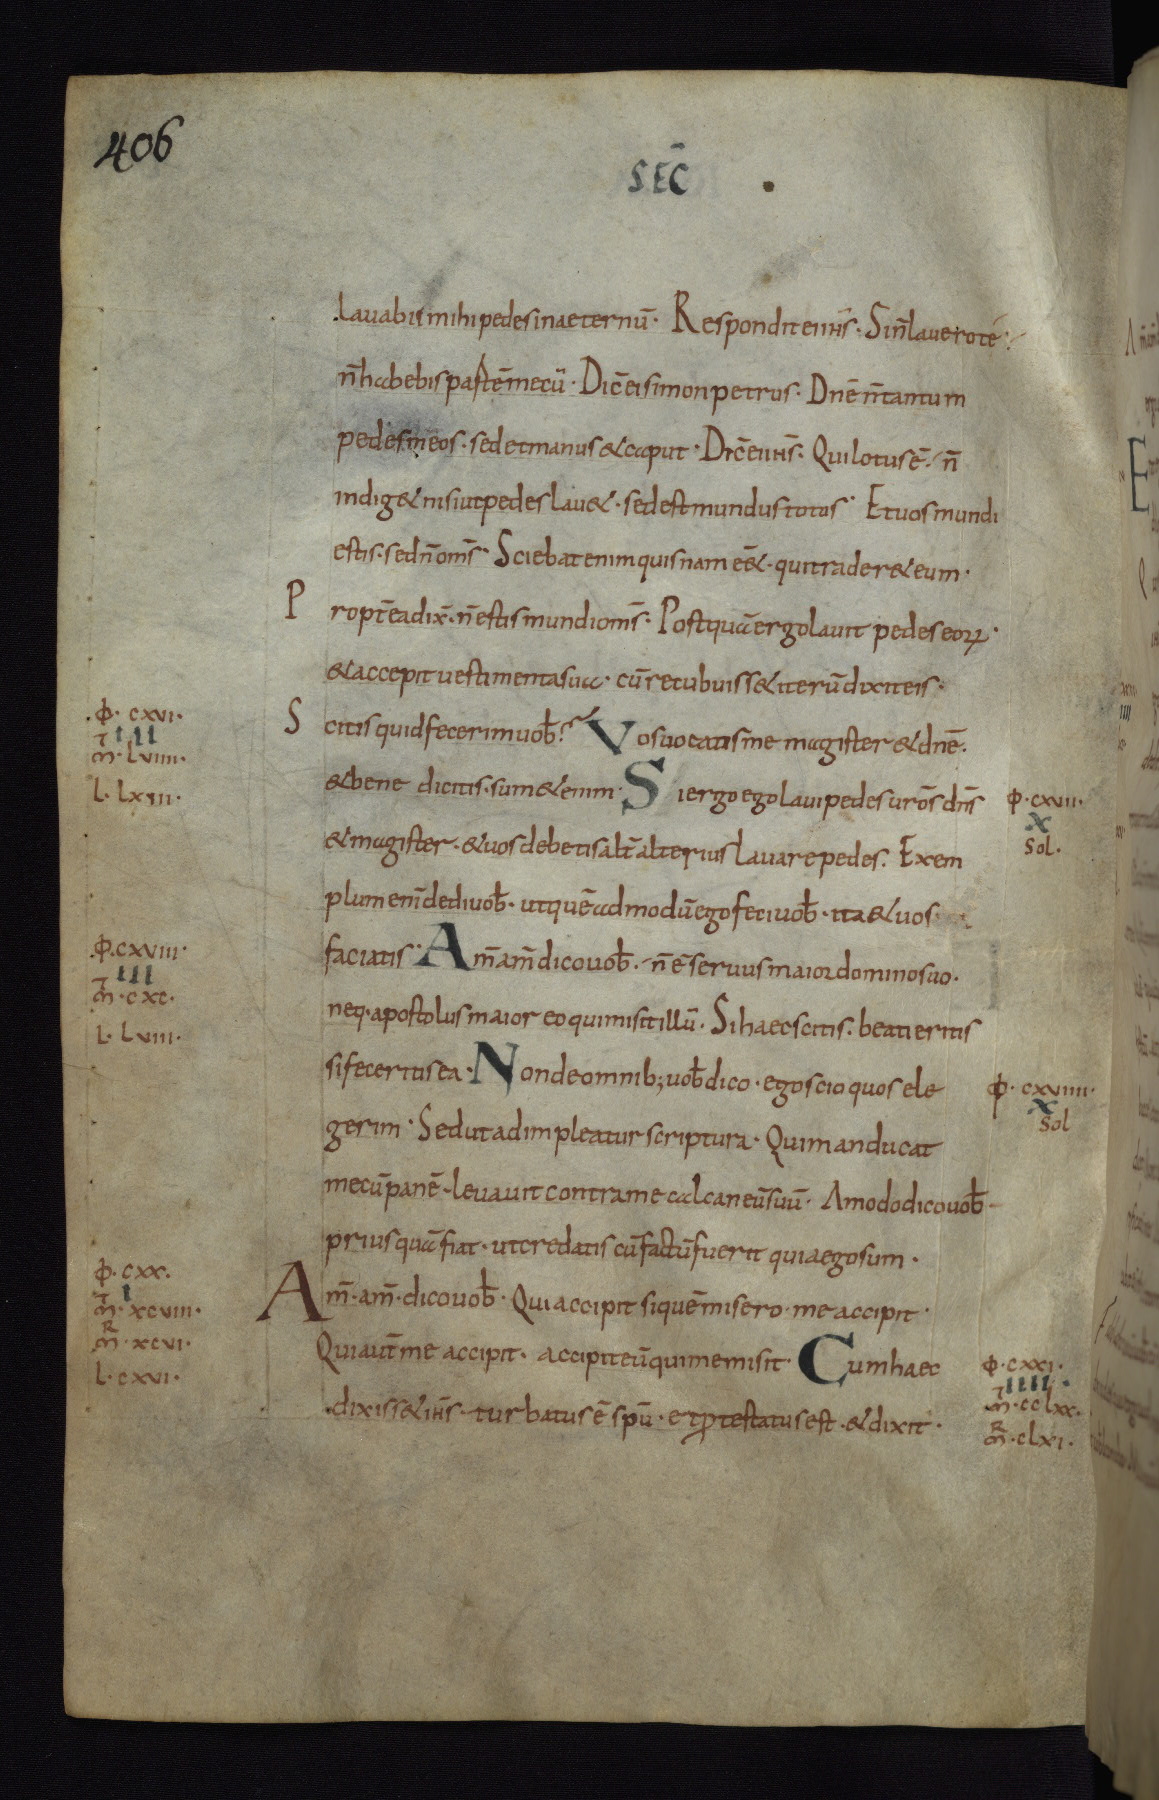 406
SEC̄
Lauabis mihi pedes in aeternū· Respondit ei ih̄s· Si n̄ lauero te·
n̄ habebis partē mecū· Dic̄ ei simon petrus· Dn̄e n̄ tantum
pedes meos· sed et manus & caput· Dic̄ ei ih̄s· Qui lotus ē· n̄
indig& nisi ut pedes lau&· sed est mundus totus· Et uos mundi
estis· sed n̄ om̄s· Sciebat enim quis nam eē&· qui trader& eum·
Propt̄ea dix̄· n̄ estis mundi om̄s· Postquā ergo lauit pedes eoꝝ·
& accepit uestimenta sua· cū recubuiss& iterū dixit eis·
Scitis quid fecerim uob̄? Vos uocatis me magister & dn̄e·
& bene dicitis· sum &enim· Si ergo ego laui pedes ur̄os dn̄s
& magister· & uos debetis alt̄ alterius lauare pedes· Exem
plum enī dedi uob̄· ut quē admodū ego feci uob̄· ita & uos
faciatis· Am̄ am̄ dico uob̄· n̄ ē seruus maior domino suo·
neq· apostolus maior eo qui misit illū· Si haec scitis· beati eritis
si feceritis ea· Non de omnib; uob̄ dico· ego scio quos ele
gerim· Sed ut adimpleatur scriptura· Qui manducat
mecū panē· leuauit contra me calcaneū suū· Amodo dico uob̄
prius quā fiat· ut credatis cū factū fuerit quia ego sum·
Am̄· am̄· dico uob̄· Qui accipit si quē misero· me accipit·
Qui aut̄ me accipit· accipit eū qui me misit· Cum haec
dixiss& ih̄s· turbatus ē spū· et ꝓtestatus est· & dixit·
φ· cxvi·
III
m̄· Lviiii·
L· Lxiii·
φ· cxvii·
X
Sol·
φ· cxviii·
III
m̄· cxc·
L· Lviii·
φ· cxviiii·
X
Sol
φ· cxx·
I
m̄· xcviii·
m̄R· xcvi·
L· cxvi·
φ· cxxi·
IIII
m̄· cclxx·
m̄R· clxi·